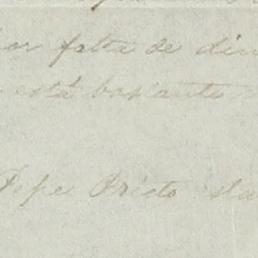 por falta de din
está bastante
Pepe Prieto sta